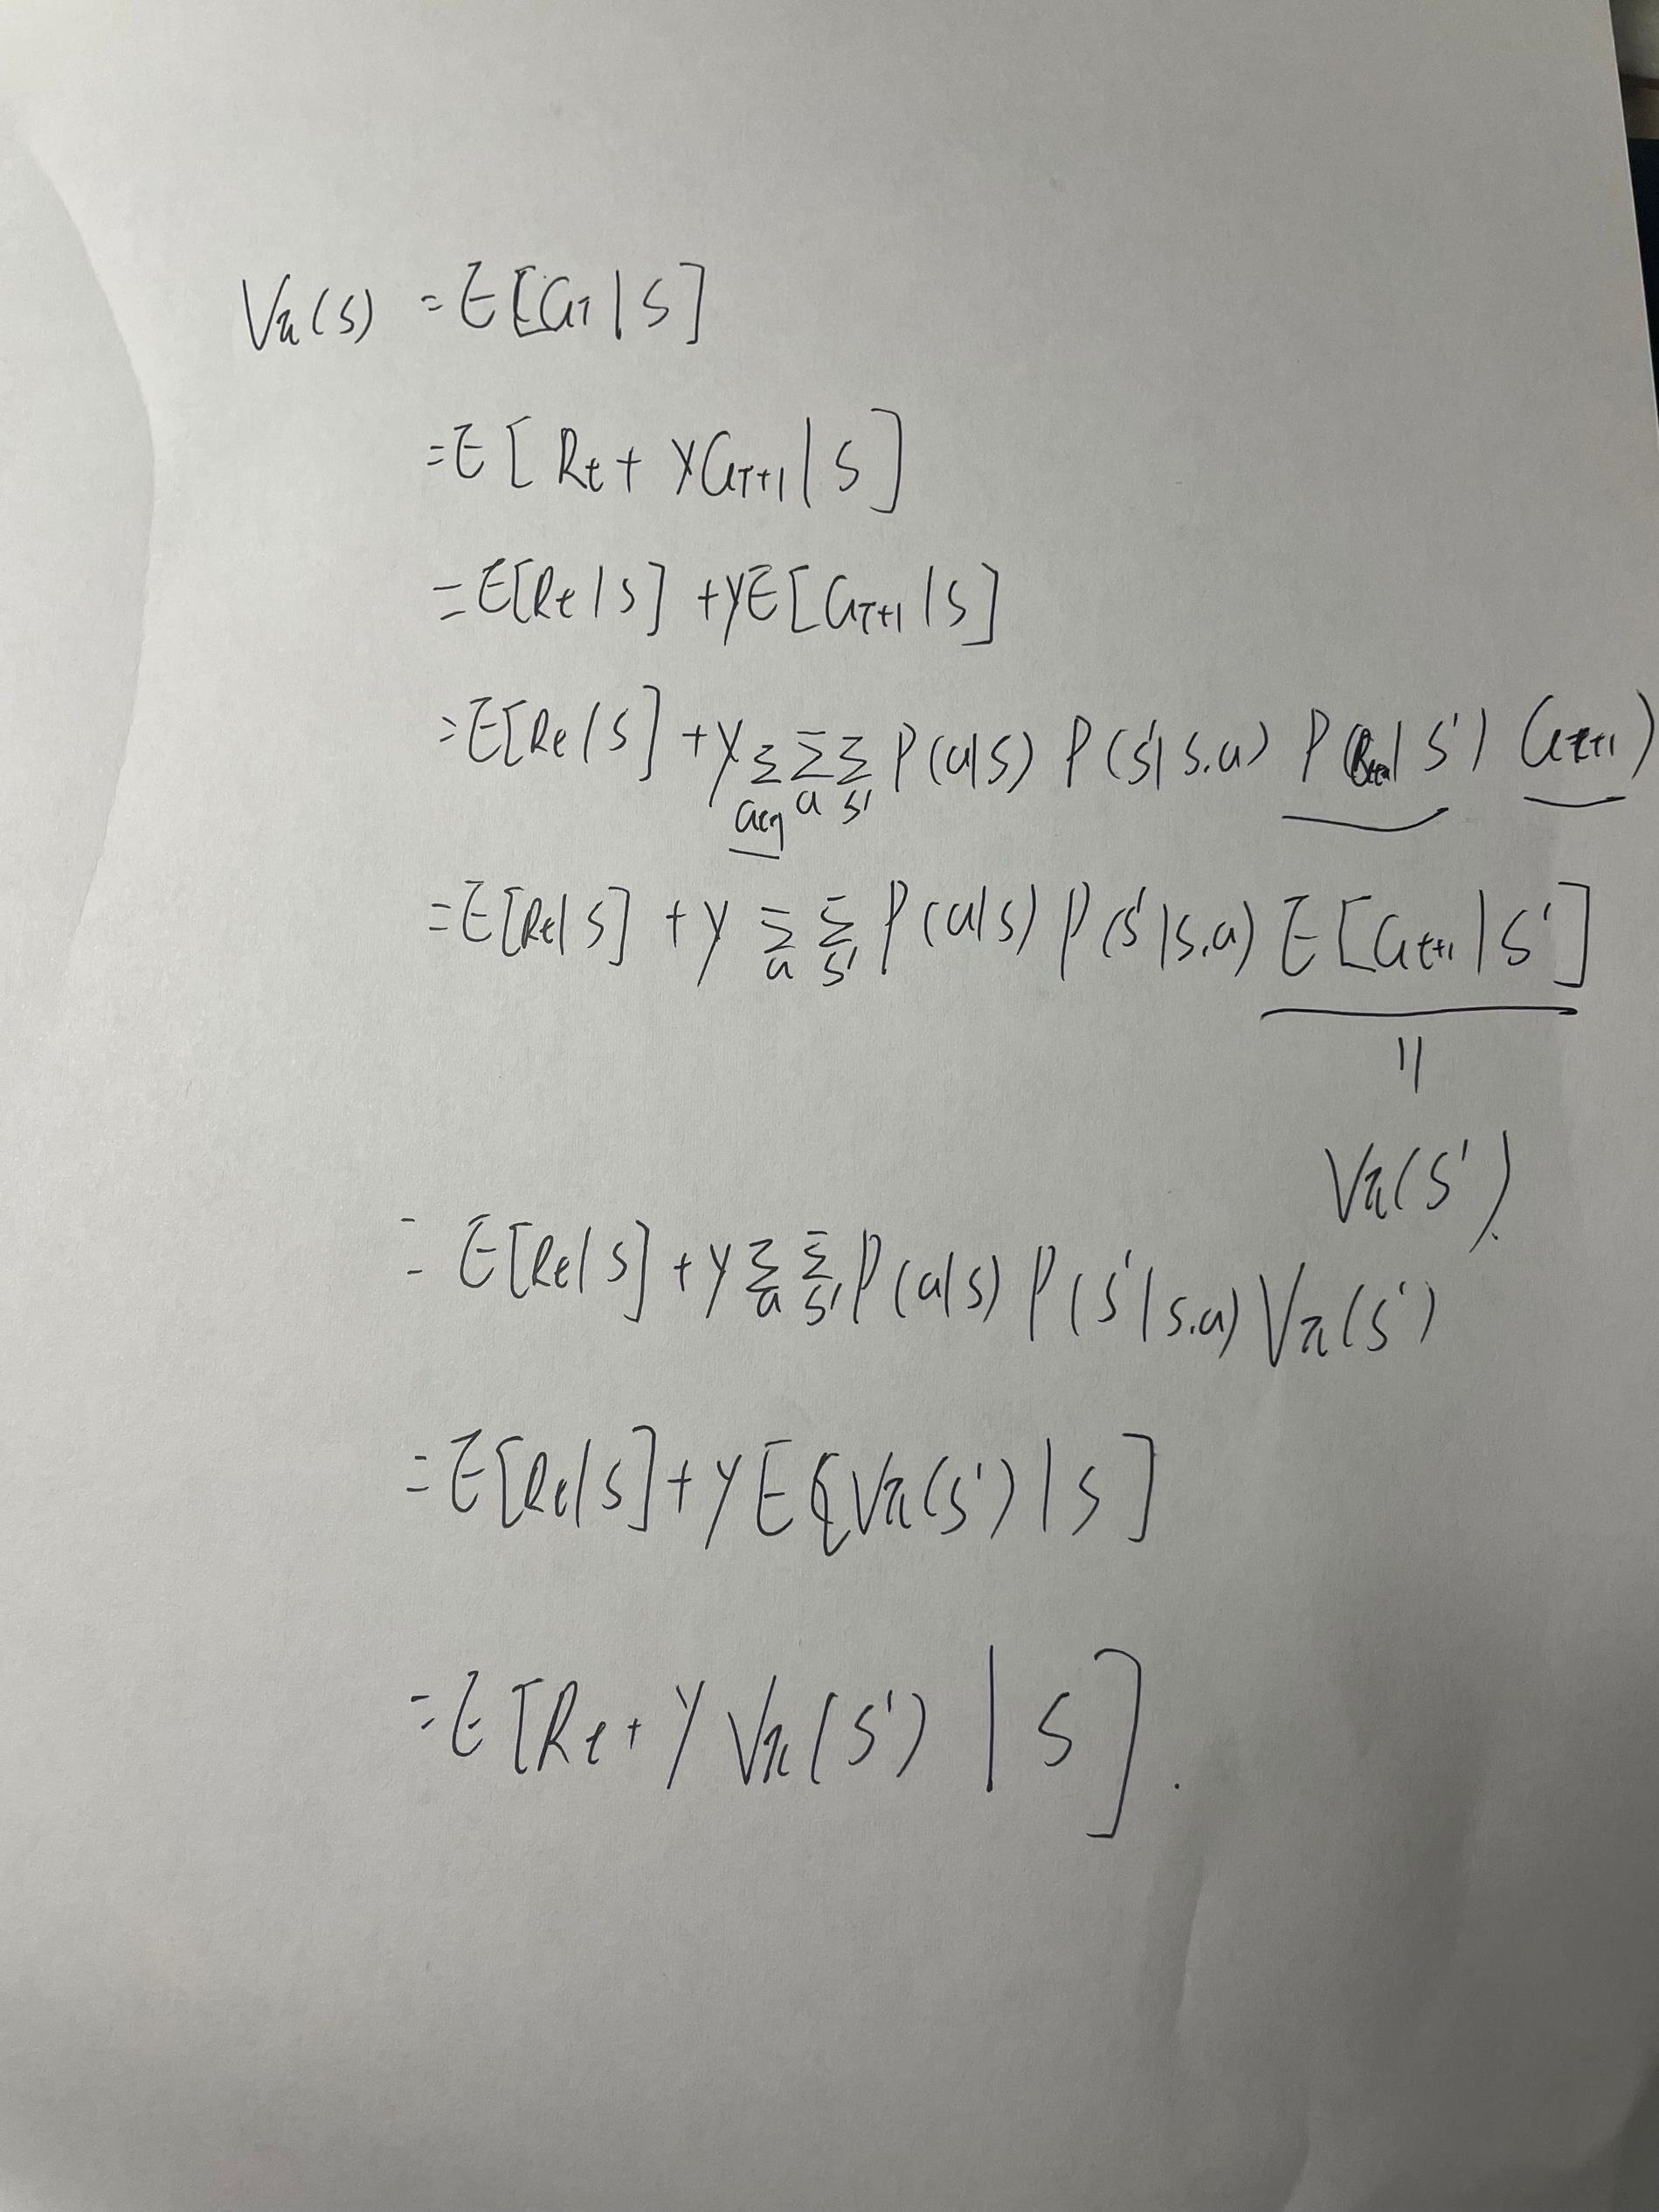 Vπ(s) = E[G_T | S]
= E[R_t + γG_{T+1} | S]
= E[R_t | S] + γE[G_{T+1} | S]
= E[R_t | S] + γ Σ Σ_a Σ_{s'} P(a|s) P(s'|s.a) P( | s') (G_{t+1})
= E[R_t | S] + γ Σ_a Σ_{s'} P(a|s) P(s'|s.a) E[G_{t+1} | S']
||
Vπ(s').
= E[R_t | S] + γ Σ_a Σ_{s'} P(a|s) P(s'|s.a) Vπ(s')
= E[R_t | S] + γ E[Vπ(s') | S]
= E[R_t + γ Vπ(s') | S].